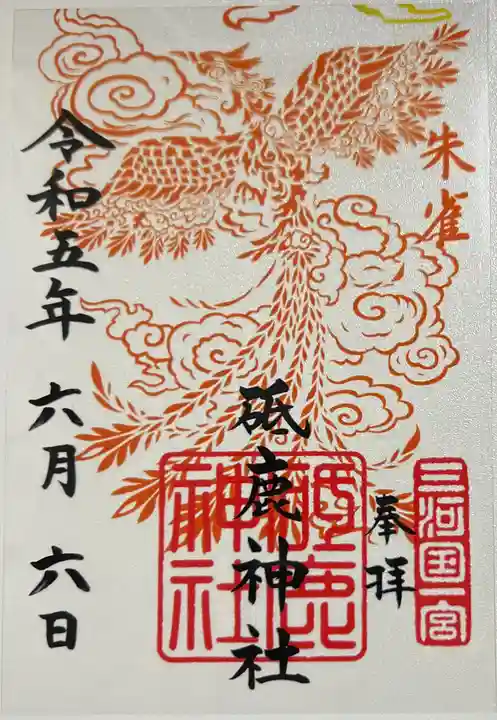 朱雀
三河国一宮
奉拝
砥鹿神社
砥鹿
神社
令和五年 六月 六日